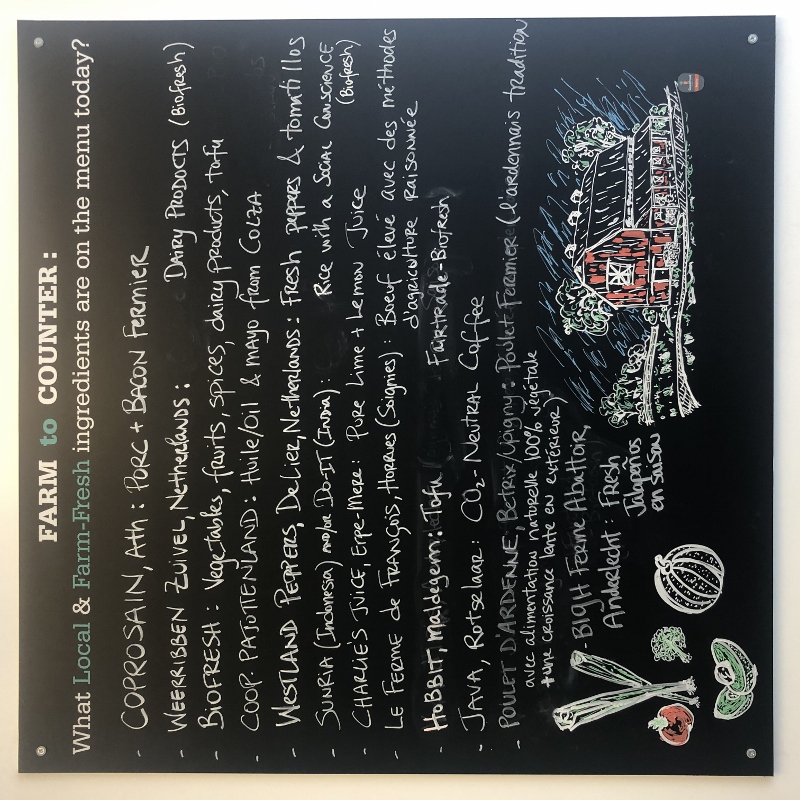 FARM to COUNTER:
What Local & Farm-Fresh ingredients are on the menu today?
- COPROSAIN, Ath : PORC + BACON FERMIER
- WEERRIBBEN ZUIVEL, Netherlands : DAIRY PRODUCTS (Biofresh)
- BIOFRESH : Vegetables, fruits, spices, dairy products, tofu
- COOP PAJOTTENLAND : Huile/Oil & mayo from COLZA
- WESTLAND PEPPERS, De Lier, Netherlands : Fresh peppers & tomatillos
- SUNRIA (Indonesia) and/or DO-IT (India) : Rice with a Social Conscience (Biofresh)
- CHARLIE'S JUICE, Erpe-Mere : Pure Lime + Lemon Juice
- Le Ferme de François, Horrues (Soignies) : Bœuf élevé avec des méthodes
d'agriculture raisonnée
- HOBBIT, Maldegem : Tofu Fairtrade - Biofresh
- JAVA, Rotselaar : CO2 - Neutral Coffee
- POULET D'ARDENNE, Bertrix/Ligny : Poulet Fermière (l'ardennais tradition
avec alimentation naturelle 100% végétale
+ une croissance lente en extérieur)
- BIGH Ferme Abattoir,
Anderlecht : Fresh
Jalapeños
en saison